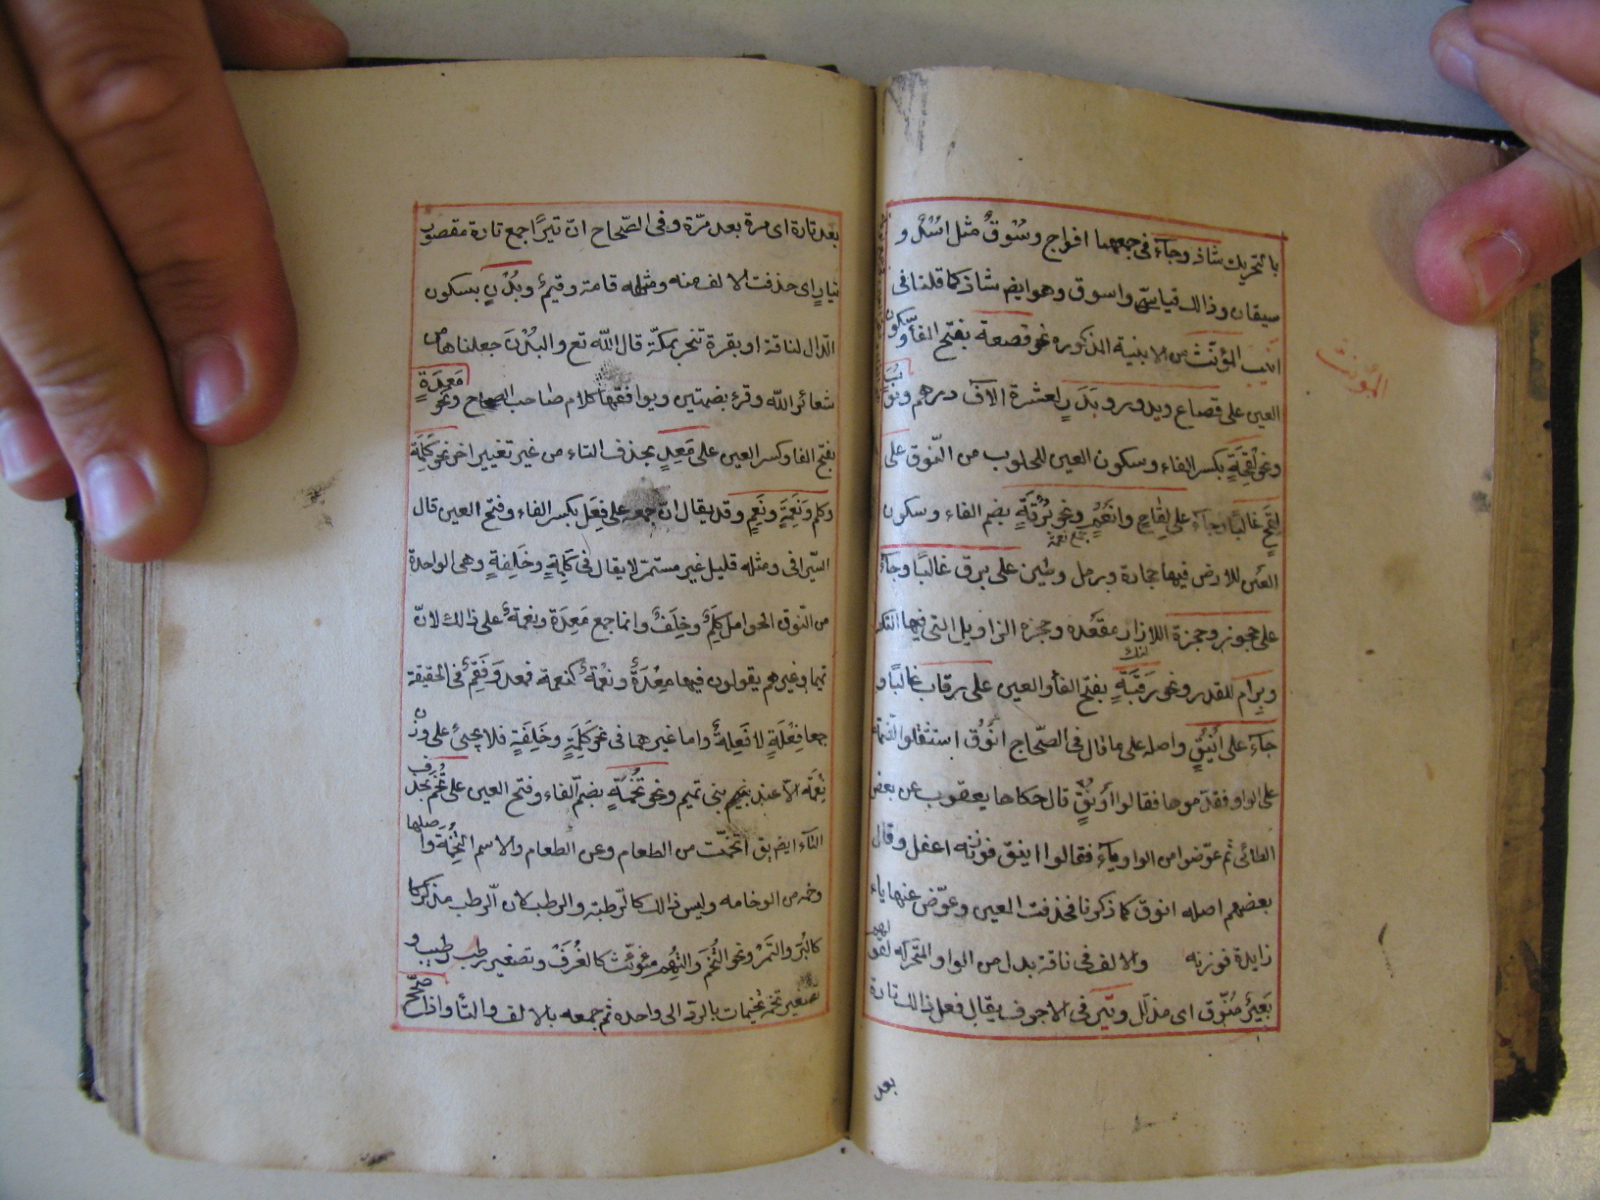 بالتحريك شاذ وجآء فى جمعهما افواج وسُوقٌ مثل اسُدٌ و
سيقان وذالك قياسىّ واسوق وهو ايض شاذ كما قلنا فى
انيب المؤنّث من الابنية المذكوره نحو قصعة بفتح الفأ وسكون
المؤنث
العين على قصاع وبدور وبَدَرٍ لعشرة الآف درهم ونُوَبٌ
ونحو لِقْحَةٍ بكسر الفاء وسكون العين للحلوب من النّوق على
لِقَحٍ غالبًا وجآء على لِقاحٍ وانعُمٍ ونحو بُرْقَةٍ بضم الفاء وسكون
جمع نعمة
العين للارض فيها حجارة ورمل وطين على برق غالبًا وجآء
على حجوز وحجزة اللازار مقعده وحجزة السراويل التى فيها التكه
وبِرام للقدر ونحو رَقَبَةٍ بفتح الفأ والعين على رقاب غالبًا و
جآء على اَنْيُقٍ واصله على ما قال فى الصّحاح انوُق استثقلوا الضّمة
على الواو فقدّموها فقالوا اَوْنُقٌ قال حكاها يعقوب عن بعض
الطائى ثم عوّضوا من الواو ياء فقالوا اينق فوزنه اعفل وقال
بعضهم اصله انوق كما ذكرنا فحذفت العين وعوّض عنها ياء
زايدة فوزنه والالف فى ناقة بدل من الواو المتحركه لقولهم
بَعيرٌ مُنَوّق اى مذلّل وتِيَر فى الاجوف يقال فعل ذالك تارة
بعد
بعد تارة اى مرة بعد مرّة وفى الصّحاح انّ تيرًا جمع تارة مقصور
تيارٍ اى حذفت الالف منه ومثله قامة وقيمٌ وبُدْنٍ بسكون
الدّال لناقة او بقرة تنحر بمكّة قال اللّه تع والبُدْنَ جعلناها من
شعائر اللّه وقرئ بضمتين ويوافقها كلام صاحب الصحاح ونحو مَعِدَةٍ
بفتح الفا وكسر العين على مَعِدٍ بحذف التاء من غير تغيير اخر نحو كَلِمَة
وكلم ونَعِمَةٍ ونَعِمٍ وقد يقال انّ جمعه على فِعَل بكسر الفاء وفتح العين قال
السّيرافى ومثله قليل غير مستمرّ لا يقال فى كَلِمَةٍ وخَلِفةٍ وهى الواحدة
من النّوق الحوامل كِلَمٌ وخِلَفٌ وانما جمع مَعِدَة ونقمةٌ على ذالك لانّ
تميما وغيرهم يقولون فيها مِعْدَةٌ ونقْمةٌ كنعمة فمعد ونقم فى الحقيقة
جمعا فِعْلَةٍ لا فَعِلةٌ واما غيرهما فى نحو كَلِمَةٍ وخَلِفَةٍ فلا يجيئ على وزن
نِعْمَه الاّ عند بعض بنى تميم ونحو تُخَمَةٍ بضمّ الفاء وفتح العين على تُخَم بحذف
التآء ايض يق اتخمت من الطعام وعن الطعام والاسم التُخَمة واصلها
وخمه من الوخامه وليس ذالك كالرّطبة والرطب كان الرّطب مذكر كا
كالبُرّ والتَّمرْ ونحو التُخَمَ والتُهَم مؤنّث كالغُرَفْ وتصغير رطب رطيب و
تصغير تخم تخيمات بالردّ الى واحده ثم جمعه بالالف والتّأ واذا صحّ